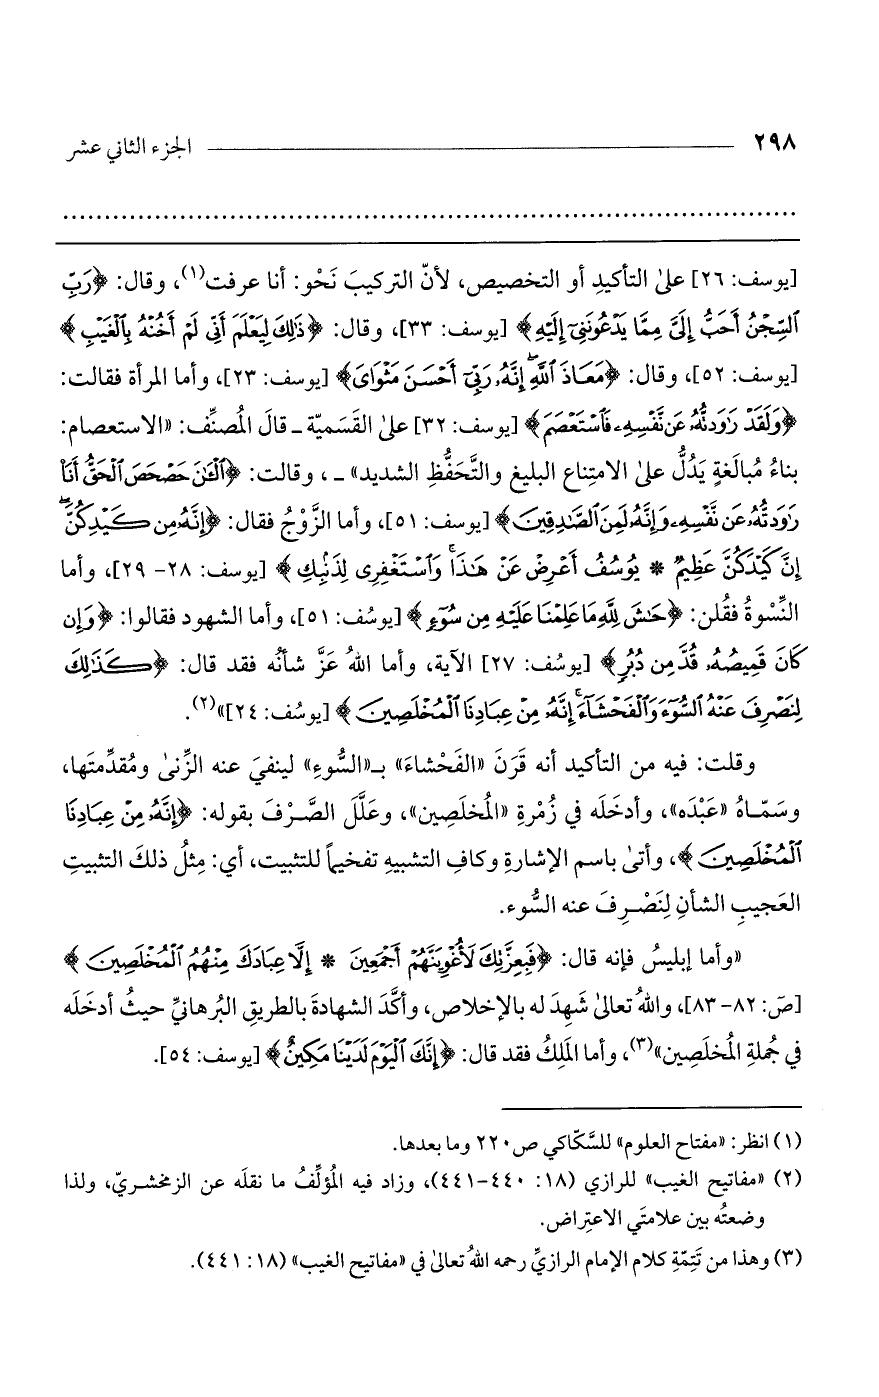 ٢٩٨ الجزء الثاني عشر
[يوسف: ٢٦] علىٰ التأكيدِ أو التخصيص، لأنّ التركيبَ نَحْو: أنا عرفت(١)، وقال: ﴿رَبِّ
ٱلسِّجْنُ أَحَبُّ إِلَىَّ مِمَّا يَدْعُونَنِىٓ إِلَيْهِ﴾ [يوسف: ٣٣]، وقال: ﴿ذَٰلِكَ لِيَعْلَمَ أَنِّى لَمْ أَخُنْهُ بِٱلْغَيْبِ﴾
[يوسف: ٥٢]، وقال: ﴿مَعَاذَ ٱللَّهِ ۖ إِنَّهُۥ رَبِّىٓ أَحْسَنَ مَثْوَاىَ﴾ [يوسف: ٢٣]، وأما المرأة فقالت:
﴿وَلَقَدْ رَٰوَدتُّهُۥ عَن نَّفْسِهِۦ فَٱسْتَعْصَمَ﴾ [يوسف: ٣٢] علىٰ القَسَميّة ـ قالَ المُصنِّف: «الاستعصام:
بناءُ مُبالَغةٍ يَدُلُّ علىٰ الامتِناع البليغ والتَّحَفُّظِ الشديد» ـ ، وقالت: ﴿ٱلْـَٰٔنَ حَصْحَصَ ٱلْحَقُّ أَنَا۠
رَٰوَدتُّهُۥ عَن نَّفْسِهِۦ وَإِنَّهُۥ لَمِنَ ٱلصَّٰدِقِينَ﴾ [يوسف: ٥١]، وأما الزَّوْجُ فقال: ﴿إِنَّهُۥ مِن كَيْدِكُنَّ ۖ
إِنَّ كَيْدَكُنَّ عَظِيمٌ * يُوسُفُ أَعْرِضْ عَنْ هَٰذَا ۚ وَٱسْتَغْفِرِى لِذَنۢبِكِ﴾ [يوسف: ٢٨- ٢٩]، وأما
النِّسْوةُ فقُلن: ﴿حَٰشَ لِلَّهِ مَا عَلِمْنَا عَلَيْهِ مِن سُوٓءٍ﴾ [يوسُف: ٥١]، وأما الشهود فقالوا: ﴿وَإِن
كَانَ قَمِيصُهُۥ قُدَّ مِن دُبُرٍ﴾ [يوسُف: ٢٧] الآية، وأما اللهُ عَزَّ شأنُه فقد قال: ﴿كَذَٰلِكَ
لِنَصْرِفَ عَنْهُ ٱلسُّوٓءَ وَٱلْفَحْشَآءَ ۚ إِنَّهُۥ مِنْ عِبَادِنَا ٱلْمُخْلَصِينَ﴾ [يوسُف: ٢٤]»(٢).
وقلت: فيه من التأكيد أنه قَرَنَ «الفَحْشاءَ» بـ«السُّوءِ» لينفيَ عنه الزِّنىٰ ومُقدِّمتَها،
وسَمّاهُ «عَبْدَه»، وأدخَلَه في زُمْرةِ «المُخلَصِين»، وعلَّلَ الصَّرْفَ بقوله: ﴿إِنَّهُۥ مِنْ عِبَادِنَا
ٱلْمُخْلَصِينَ﴾، وأتىٰ باسم الإشارةِ وكافِ التشبيهِ تفخيماً للتثبيت، أي: مِثلُ ذلكَ التثبيتِ
العَجيبِ الشأنِ لِنَصْرِفَ عنه السُّوء.
«وأما إبليسُ فإنه قال: ﴿فَبِعِزَّتِكَ لَأُغْوِيَنَّهُمْ أَجْمَعِينَ * إِلَّا عِبَادَكَ مِنْهُمُ ٱلْمُخْلَصِينَ﴾
[صَ: ٨٢- ٨٣]، واللهُ تعالىٰ شَهِدَ له بالإخلاص، وأكَّدَ الشهادةَ بالطريقِ البُرهانيِّ حيثُ أدخَلَه
في جُملةِ المُخلَصِين»(٣)، وأما المَلِكُ فقد قال: ﴿إِنَّكَ ٱلْيَوْمَ لَدَيْنَا مَكِينٌ﴾ [يوسف: ٥٤].
(١) انظر: «مفتاح العلوم» للسَّكّاكي ص٢٢٠ وما بعدها.
(٢) «مفاتيح الغيب» للرازي (١٨: ٤٤٠-٤٤١)، وزاد فيه المُؤلِّفُ ما نقلَه عن الزمخشريّ، ولذا
وضعتُه بين علامتَي الاعتِراض.
(٣) وهذا من تَتِمّةِ كلام الإمام الرازيِّ رحمه اللهُ تعالىٰ في «مفاتيح الغيب» (١٨: ٤٤١).